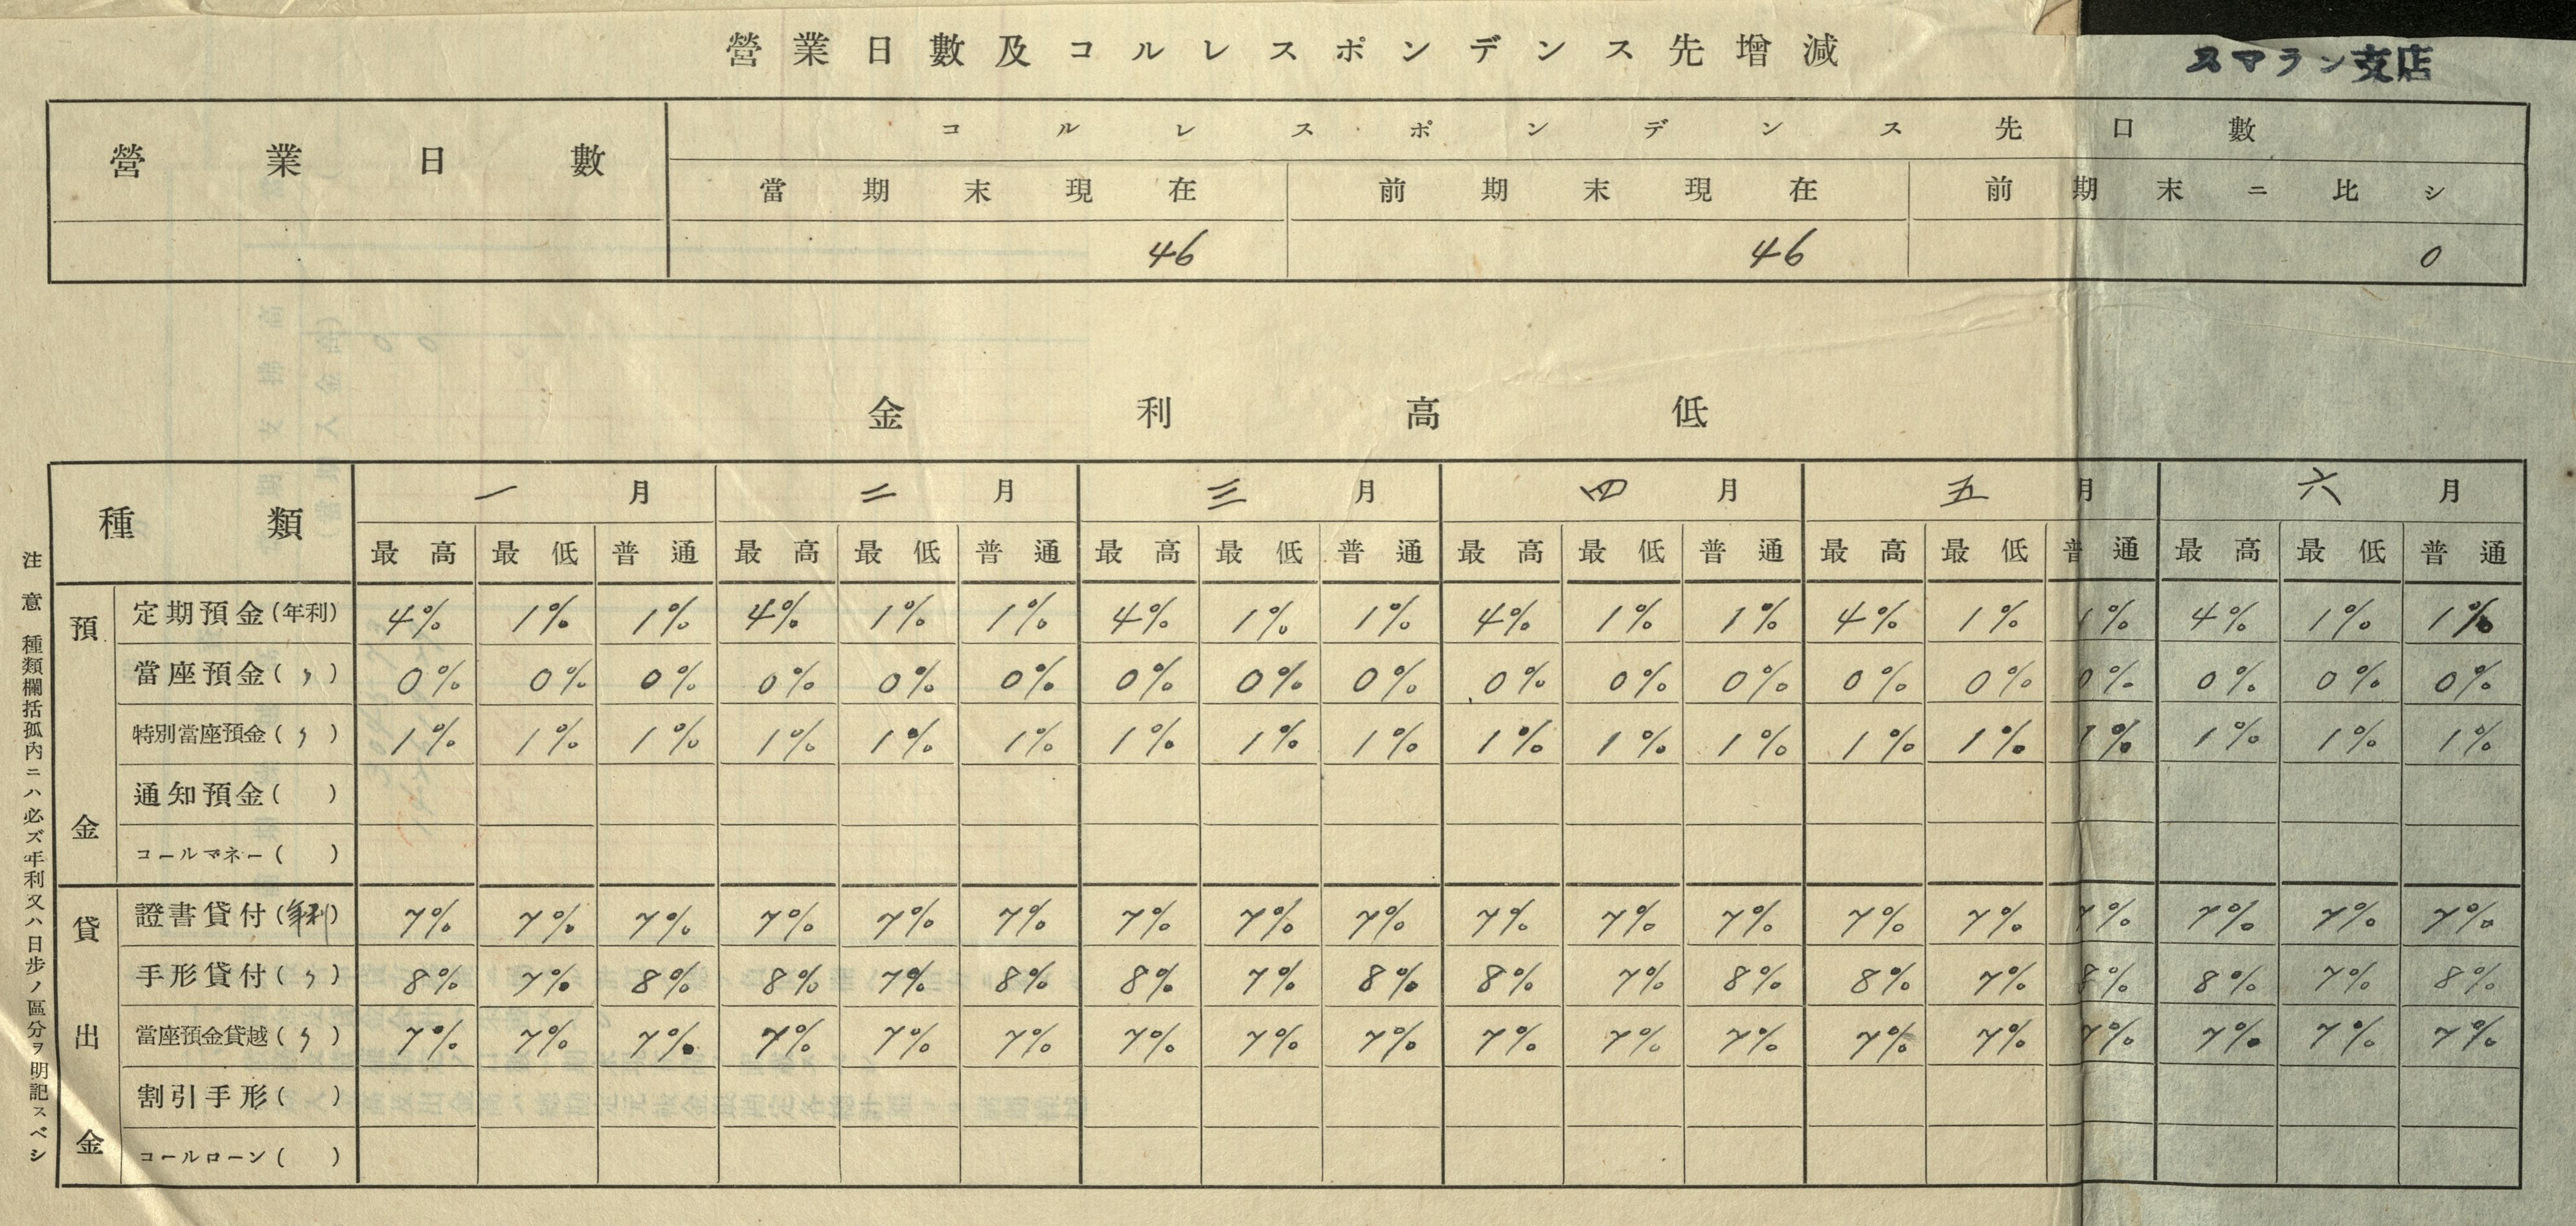 營業日數及コルレスポンデンス先增減
スマラン支店
營業日數 コルレスポンデンス先口數
當期末現在 前期末現在 前期末ニ比シ
46 46 0
金利高低
種類 一月 二月 三月 四月 五月 六月
最高 最低 普通 最高 最低 普通 最高 最低 普通 最高 最低 普通 最高 最低 普通 最高 最低 普通
預金
定期預金(年利) 4% 1% 1% 4% 1% 1% 4% 1% 1% 4% 1% 1% 4% 1% 1% 4% 1% 1%
當座預金(〃) 0% 0% 0% 0% 0% 0% 0% 0% 0% 0% 0% 0% 0% 0% 0% 0% 0% 0%
特別當座預金(〃) 1% 1% 1% 1% 1% 1% 1% 1% 1% 1% 1% 1% 1% 1% 1% 1% 1% 1%
通知預金( )
コールマネー( )
貸出金
證書貸付(年利) 7% 7% 7% 7% 7% 7% 7% 7% 7% 7% 7% 7% 7% 7% 7% 7% 7% 7%
手形貸付(〃) 8% 7% 8% 8% 7% 8% 8% 7% 8% 8% 7% 8% 8% 7% 8% 8% 7% 8%
當座預金貸越(〃) 7% 7% 7% 7% 7% 7% 7% 7% 7% 7% 7% 7% 7% 7% 7% 7% 7% 7%
割引手形( )
コールローン( )
注意 種類欄括孤內ニハ必ズ年利又ハ日步ノ區分ヲ明記スベシ